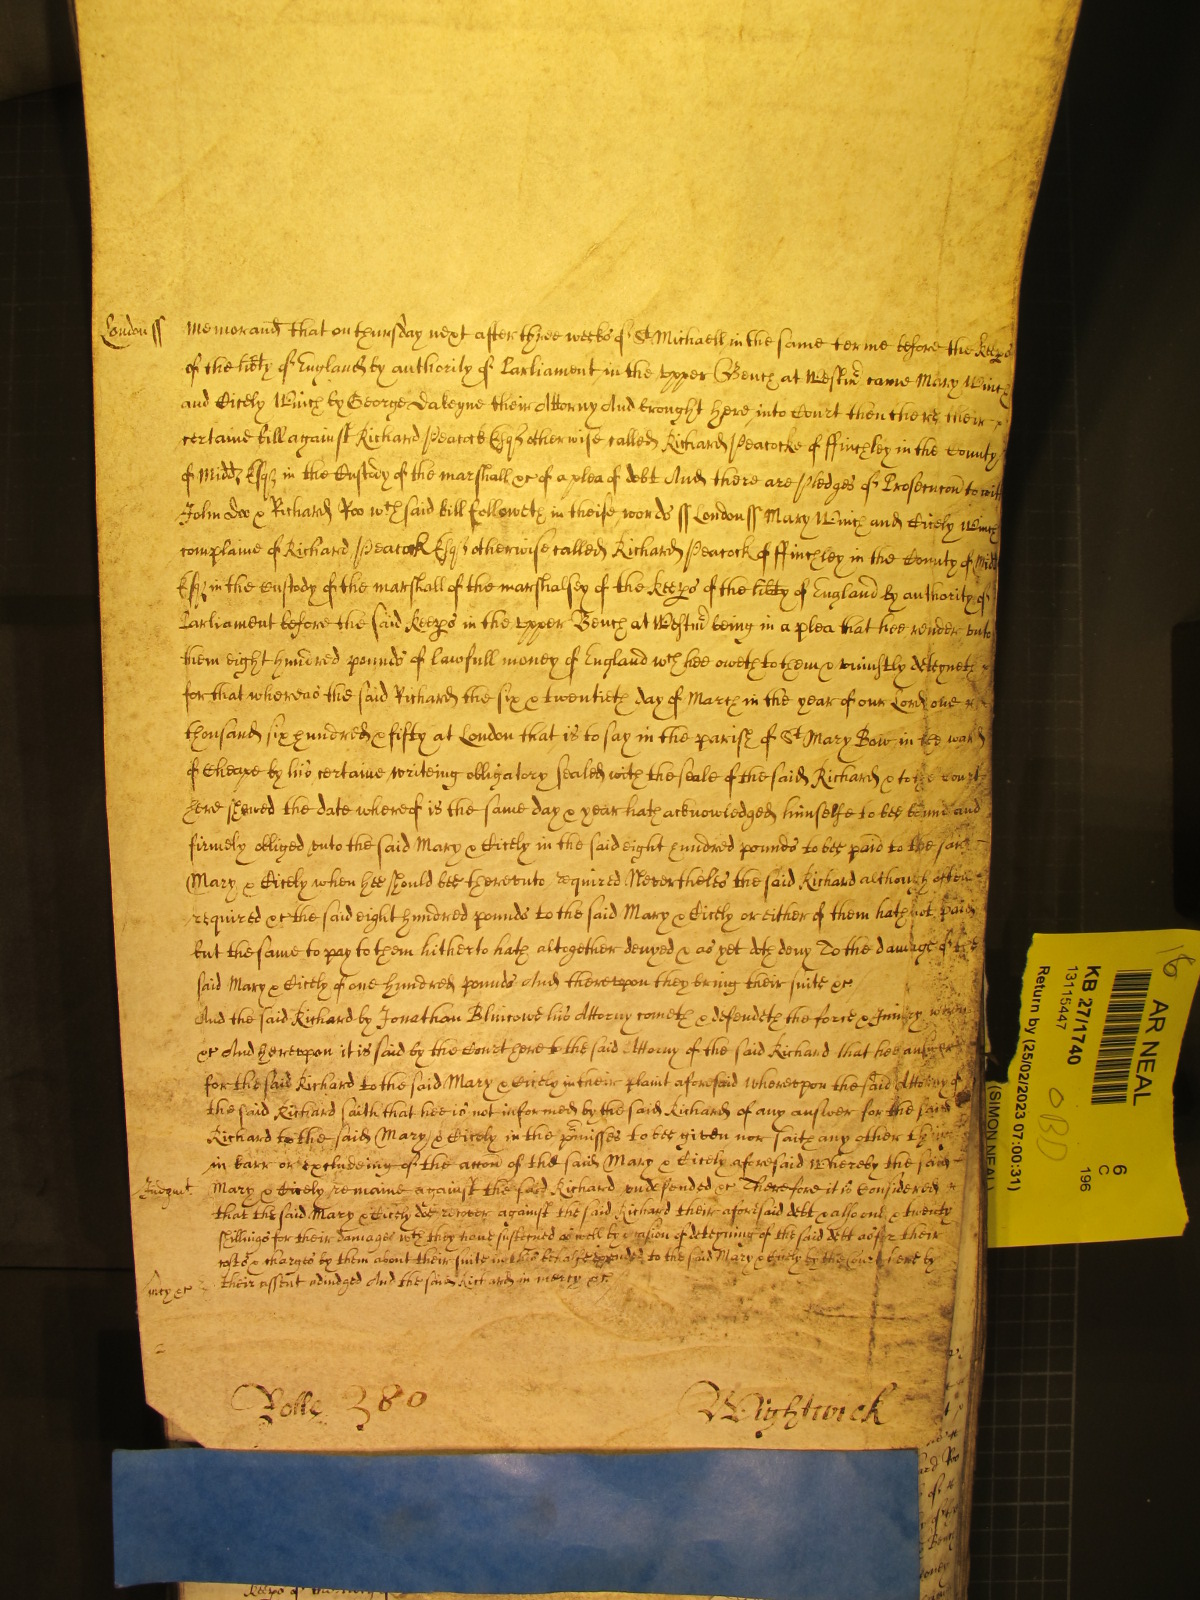 London ss Memorand that on thursday next after three weeks of St Michaell in the same terme before the keeps
of the libty of England by authority of Parliament in the upper Bench at Westmr came Mary Winch
and Cicely Winch by George Daleyne their Attorny And brought here into Court then there their
certaine bill against Richard Peacock Esqr otherwise called Richard Peacocke of ffinchley in the County
of Midd Esqr in the Custody of the marshall &c of a plea of debt And there are pledges of Prosecucon to wit
John Doo & Richard Roo wch said bill followeth in theise words ss London ss Mary Winch and Cicely Winch
complaine of Richard Peacock Esqr otherwise called Richard Peacock of ffinchley in the County of Midd
Esqr in the Custody of the marshall of the marshalsey of the keeps of the libty of England by authority of
Parliament before the said keeps in the upper Bench at Westmr being in a plea that hee render unto
them eight hundred pounds of lawfull money of England wch hee oweth to them & uniustly deteyneth
for that whereas the said Richard the six & twentieth day of March in the year of our Lord one
thousand six hundred & fifty at London that is to say in the parish of St Mary Bow in the ward
of Cheape by his certaine writeing obligatory sealed with the seale of the said Richard & to the Court
here shewed the date whereof is the same day & year hath acknowledged himselfe to bee bound and
firmely obliged unto the said Mary & Cicely in the said eight hundred pounds to bee paid to the said
Mary & Cicely when hee should bee thereunto required Neverthelss the said Richard although often
required &c the said eight hundred pounds to the said Mary & Cicely or either of them hath not paid
but the same to pay to them hitherto hath altogether denyed & as yet doth deny To the damage of the
said Mary & Cicely of one hundred pounds And thereupon they bring their suite &c
And the said Richard by Jonathan Blincowe his Attorny cometh & defendeth the force & Iniury when
&c And hereupon it is said by the Court here to the said Attorny of the said Richard that hee answer
for the said Richard to the said Mary & Cicely in their plaint aforesaid whereupon the said Attorny of
the said Richard saith that hee is not informed by the said Richard of any answer for the said
Richard to the said Mary & Cicely in the pmisses to bee given nor saith any other thing
in barr or excludeing of the accon of the said Mary & Cicely aforesaid Whereby the said
Judgmt. Mary & Cicely remaine against the said Richard undefended &c Therefore it is Considered
that the said Mary & Cicely doe recover against the said Richard their aforesaid debt & alsoe one & twenty
shillings for their damages wch they have susteined as well by occasion of deteyning of the said debt as for their
costs & charges by them about their suite in this behalfe expended to the said Mary & Cicely by the Court here by
mcy &c their assent adiudged And the said Richard in mercy &c
Rolle 380 Wightwick
AR NEAL
KB 27/1740
13115447
Return by (25/02/2023 07:00:31)
(SIMON NEAL)
6
C
196
18
OBD